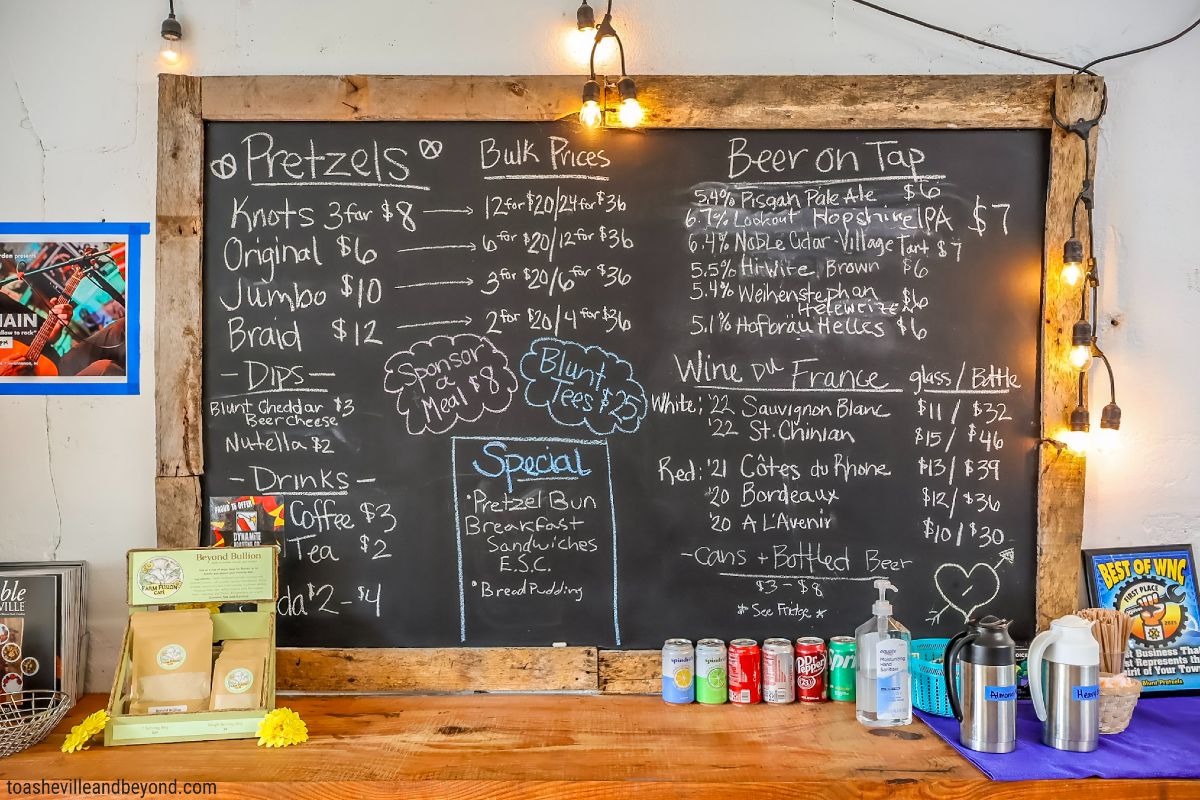 Pretzels
Knots 3 for $8
Original $6
Jumbo $10
Braid $12
Bulk Prices
12 for $20/24 for $36
6 for $20/12 for $36
3 for $20/6 for $36
2 for $20/4 for $36
-Dips-
Blunt Cheddar $3
Beer Cheese
Nutella $2
-Drinks-
Coffee $3
Tea $2
da $2-$4
Sponsor
a
Meal $8
Blunt
Tees $25
Special
•Pretzel Bun
Breakfast
Sandwiches
E.S.C.
•Bread Pudding
Beer on Tap
5.4% Pisgah Pale Ale $6
6.7% Lookout Hopshire IPA $7
6.4% Noble Cidar-Village Tart $7
5.5% Hi-Wire Brown $6
5.4% Weihenstephan
Hefeweizen $6
5.1% Hofbräu Helles $6
Wine du France glass/Bottle
White: '22 Sauvignon Blanc $11/ $32
'22 St. Chinian $15/ $46
Red: '21 Côtes du Rhone $13/ $39
'20 Bordeaux $12/ $36
'20 A L'Avenir $10/ $30
-Cans + Bottled Beer
$3-$8
* See Fridge *
PROUD TO OFFER
DYNAMITE
ROASTING CO.
Beyond Bullion
FARM FUSION
CAFE
rden presents
HAIN
allow to rock"
ble
VILLE
spindrift
spindrift
Dr Pepper
23
equate
Moisturizing
Hand
Sanitizer
Almond
Heavy
BEST OF WNC
FIRST PLACE
2021
t Business That
st Represents the
pirit of Your Town
Blunt Pretzels
toashevilleandbeyond.com